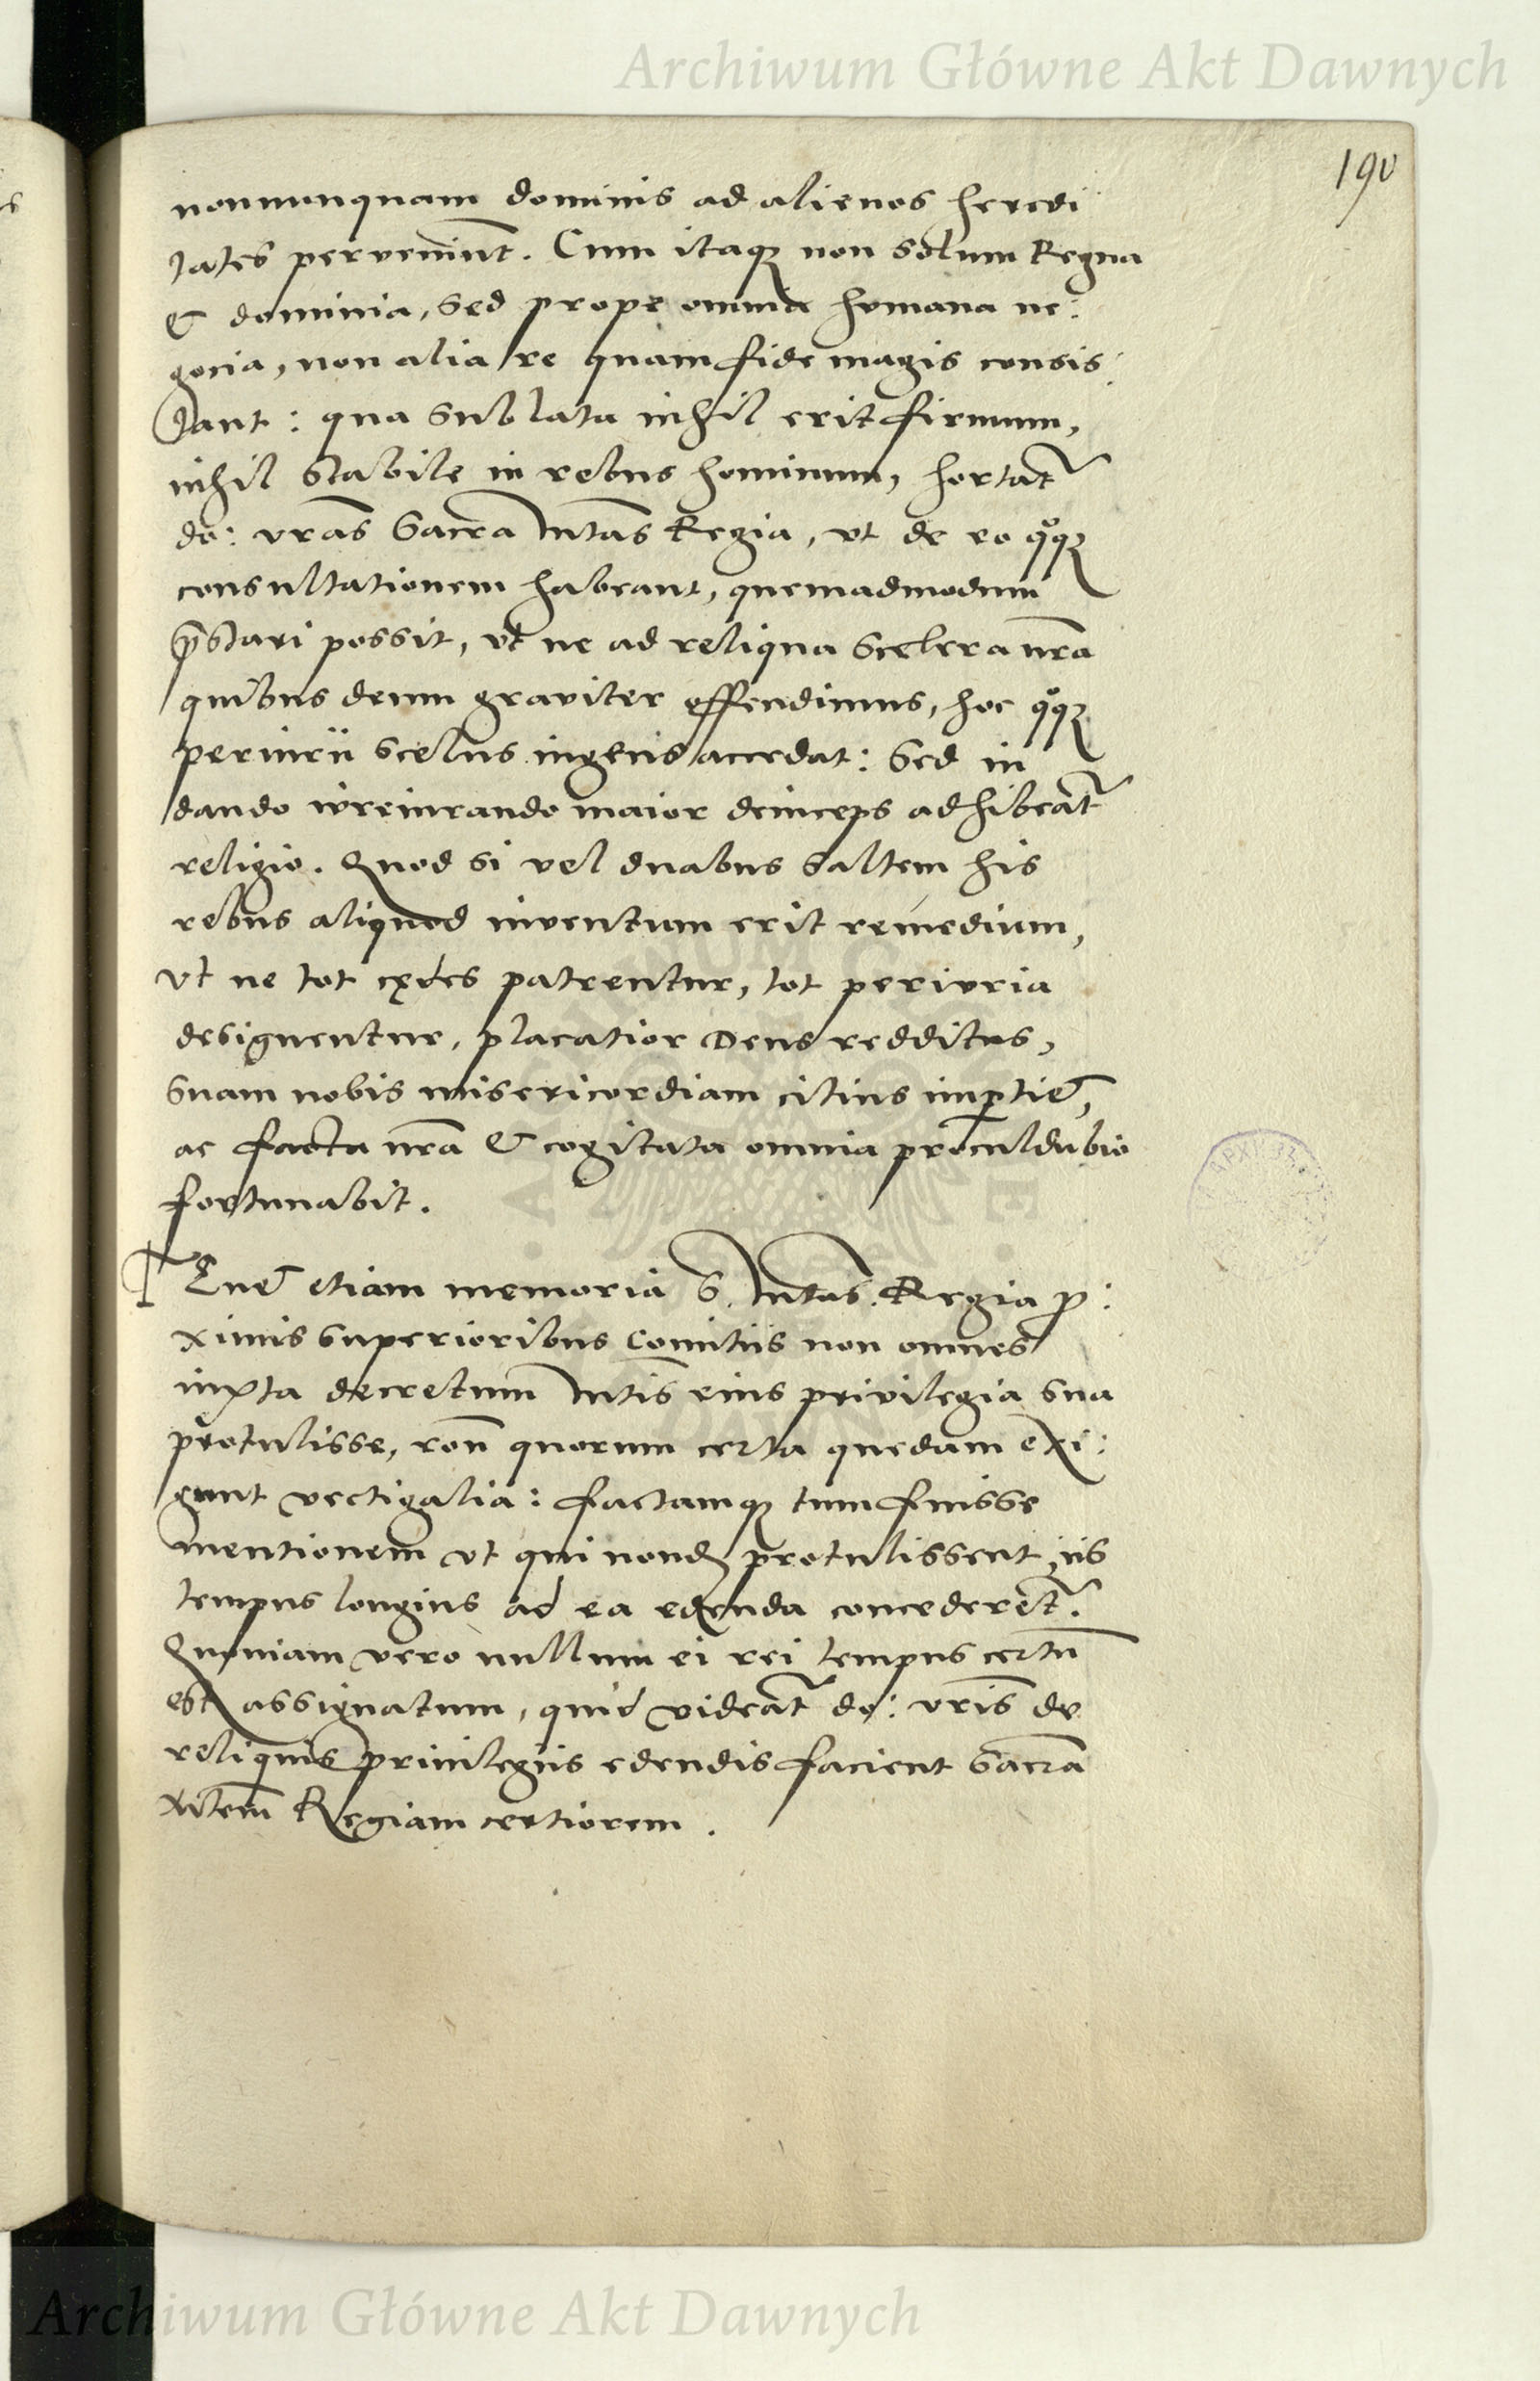 Archiwum Główne Akt Dawnych
190
nonnunquam dominis ad alienos heredi
tates perveniunt. Cum itaq₃ non solum Regna
& dominia, sed prope omnia humana ne:
gocia, non alia re quam fide magis consis:
tant: qua sublata nihil erit firmum,
nihil stabile in rebus hominum, hortat᷑
do: vrãs Sacra Mtãs Regia, vt de eo qͦq₃
consultationem habeant, quemadmodum
p̃stari possit, vt ne ad reliqua scelera nrã
quibus deum graviter offendimus, hoc qͦq₃
periurii scelus ingens accedat: Sed in
dando iureiurando maior deinceps adhibeat᷑
religio. Quod si vel duabus saltem his
rebus aliquod inventum erit remedium,
vt ne tot cędes patrentur, tot periuria
designentur, placatior Deus redditus,
suam nobis misericordiam citius imptiet᷑,
ac facta nrã & cogitata omnia proculdubio
fortunabit.
Tenet᷑ etiam memoria S. Mtas. Regia p̱:
ximis superioribus Comitiis non omnes
iuxta decretum Mtis̃ eius privilegia sua
protulisse, rõn quorum certa quedam exi:
gunt vectigalia: factamq₃ tum fuisse
mentionem vt qui nond᷑ protulissent, iis
tempus longius ad ea edenda concederet᷑.
Quoniam vero nullum ei rei tempus certũ
est assignatum, quid videat᷑ do: vrĩs de
reliquis privilegiis edendis facient Sacrã
Mtem̃ Regiam certiorem.
Archiwum Główne Akt Dawnych